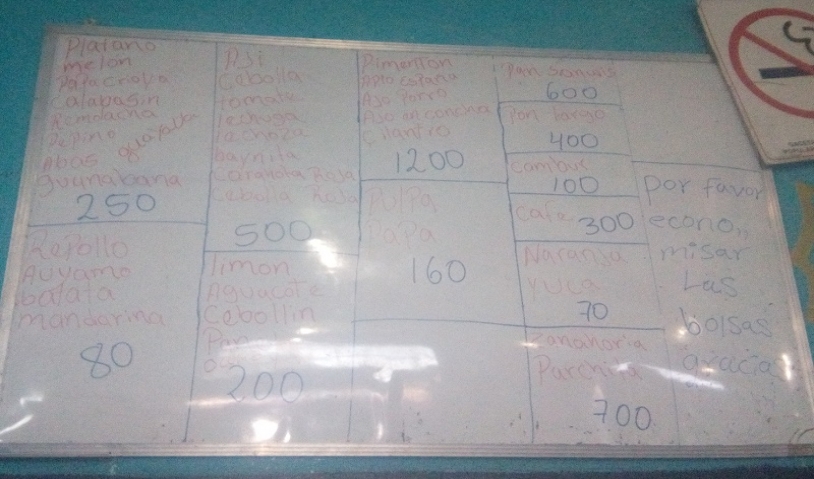 Platano
melon
Papa Criolla
Calabasin
Remolacha
Pepino
guayaba
Abas
guanabana
250
Repollo
Auyama
batata
mandarina
80
Aji
Cebolla
tomate
lechuga
lechoza
baynita
Caraota Roja
Cebolla Roja
500
limon
Aguacate
Cebollin
200
Pimenton
Apio España
Ajo Porro
Ajo en concha
Cilantro
1200
Pulpa
Papa
160
Pan
600
Pan largo
400
Cambur
100
Cafe 300
Naranja
yuca
70
Zanahoria
Parchita
700
por favor
econo,,
misar
Las
bolsas
gracia